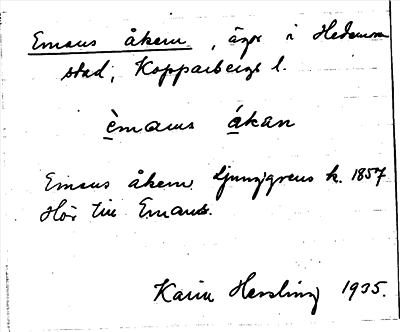 Emaus åkern, äga i Hedemora
stad, Kopparbergs l.
èmaus ákan
Emaus åkern Ljunggrens k. 1857
Hör till Emaus.
Karin Hessling 1935.